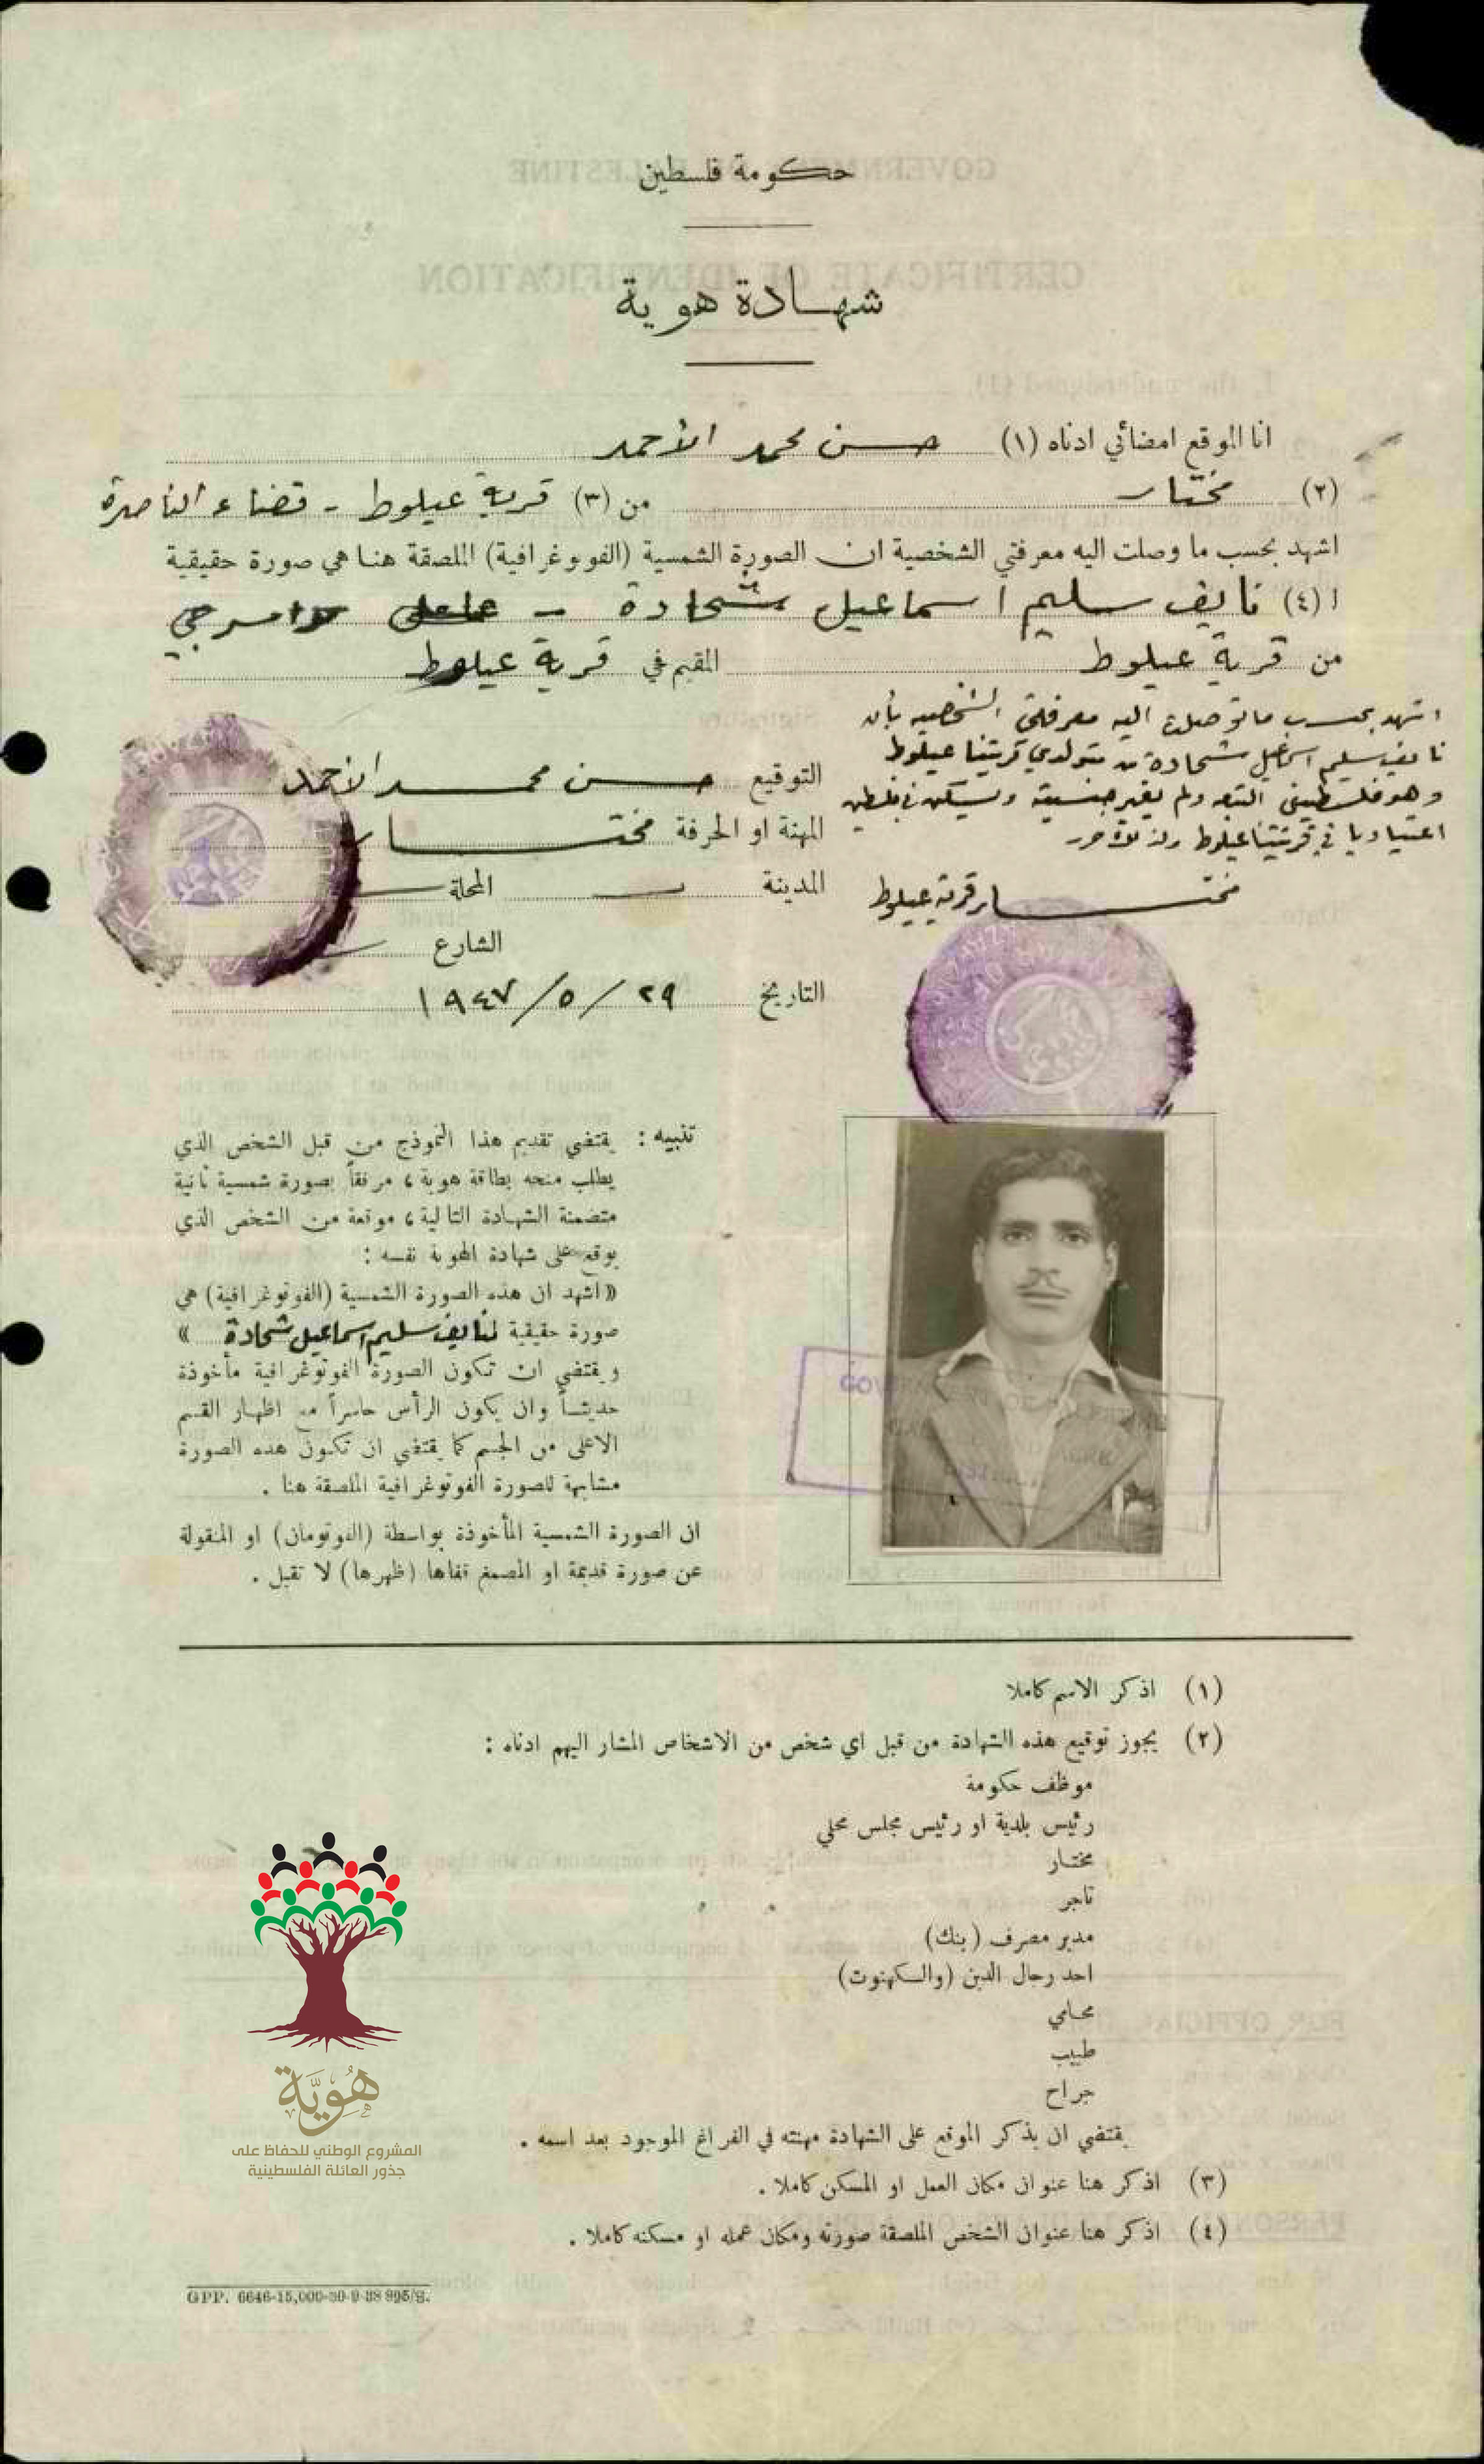 حكومة فلسطين
شهادة هوية
انا الموقع امضائي ادناه (١) حسن محمد الأحمد
(٢) مختار من (٣) قرية عيلوط - قضاء الناصرة
اشهد بحسب ما وصلت اليه معرفتي الشخصية ان الصورة الشمسية (الفوتوغرافية) الملصقة هنا هي صورة حقيقية
ا (٤) نايف سليم اسماعيل شحادة -
من قرية عيلوط المقيم في قرية عيلوط
اشهد بحسب ما توصلت اليه معرفتي الشخصيه بأن
نايف سليم اسماعيل شحادة من متولدي قريتنا عيلوط
وهو فلسطيني التبعه ولم يغير جنسيته ويسكن في فلسطين
اعتياديا في قريتنا عيلوط
مختار قرية عيلوط
التوقيع حسن محمد الأحمد
المهنة او الحرفة مختار
المدينة المحلة
الشارع
التاريخ ٢٩/٥/١٩٤٧
تنبيه : يقتضي تقديم هذا النموذج من قبل الشخص الذي
يطلب منحه بطاقة هوية ، مرفقاً بصورة شمسية ثانية
متضمنة الشهادة التالية ، موقعة من الشخص الذي
يوقع على شهادة الهوية نفسه :
« اشهد ان هذه الصورة الشمسية (الفوتوغرافية) هي
صورة حقيقية لنايف سليم اسماعيل شحادة »
ويقتضي ان تكون الصورة الفوتوغرافية مأخوذة
حديثاً وان يكون الرأس حاسراً مع اظهار القسم
الاعلى من الجسم كما يقتضي ان تكون هذه الصورة
مشابهة للصورة الفوتوغرافية الملصقة هنا .
ان الصورة الشمسية المأخوذة بواسطة (الفوتومان) او المنقولة
عن صورة قديمة او المصمغ قفاها (ظهرها) لا تقبل .
(١) اذكر الاسم كاملا
(٢) يجوز توقيع هذه الشهادة من قبل اي شخص من الاشخاص المشار اليهم ادناه :
موظف حكومة
رئيس بلدية او رئيس مجلس محلي
مختار
تاجر
مدير مصرف (بنك)
احد رجال الدين (والكهنوت)
محامي
طبيب
جراح
يقتضي ان يذكر الموقع على الشهادة مهنته في الفراغ الموجود بعد اسمه .
(٣) اذكر هنا عنوان مكان العمل او المسكن كاملا .
(٤) اذكر هنا عنوان الشخص الملصقة صورته ومكان عمله او مسكنه كاملا .
GPP. 6646-15,000-30-9-38 995/S.
هُوِيَّة
المشروع الوطني للحفاظ على
جذور العائلة الفلسطينية